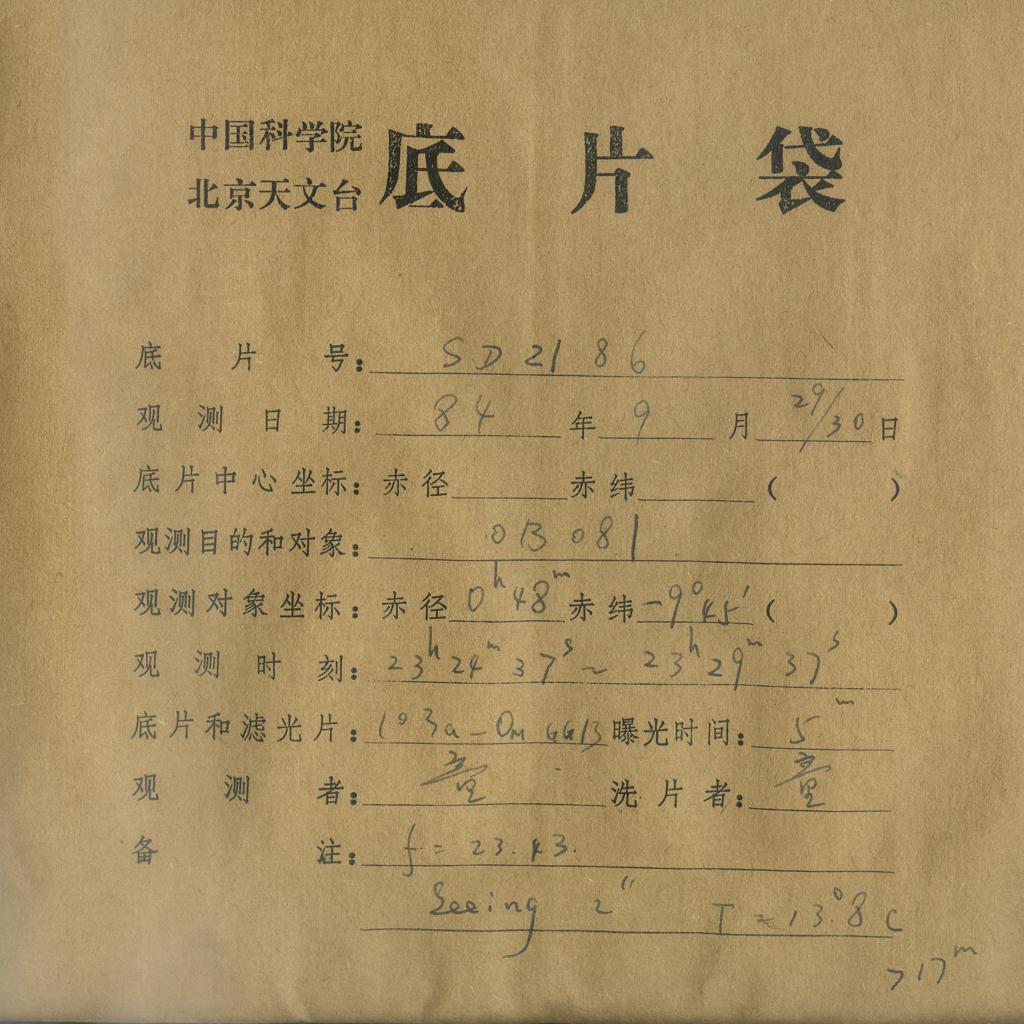 中国科学院
北京天文台 底片袋
底片号: SD2186
观测日期: 84 年 9 月 29/30 日
底片中心坐标: 赤径 赤纬 ( )
观测目的和对象: 013081
观测对象坐标: 赤径 0h48m 赤纬 -9°45' ( )
观测时刻: 23h24m37s ~ 23h29m37s
底片和滤光片: 103a-O GG13 曝光时间: 5m
观测者: 童 洗片者: 童
备注: f = 23.43.
Seeing 2" T = 13°8 C
>17m